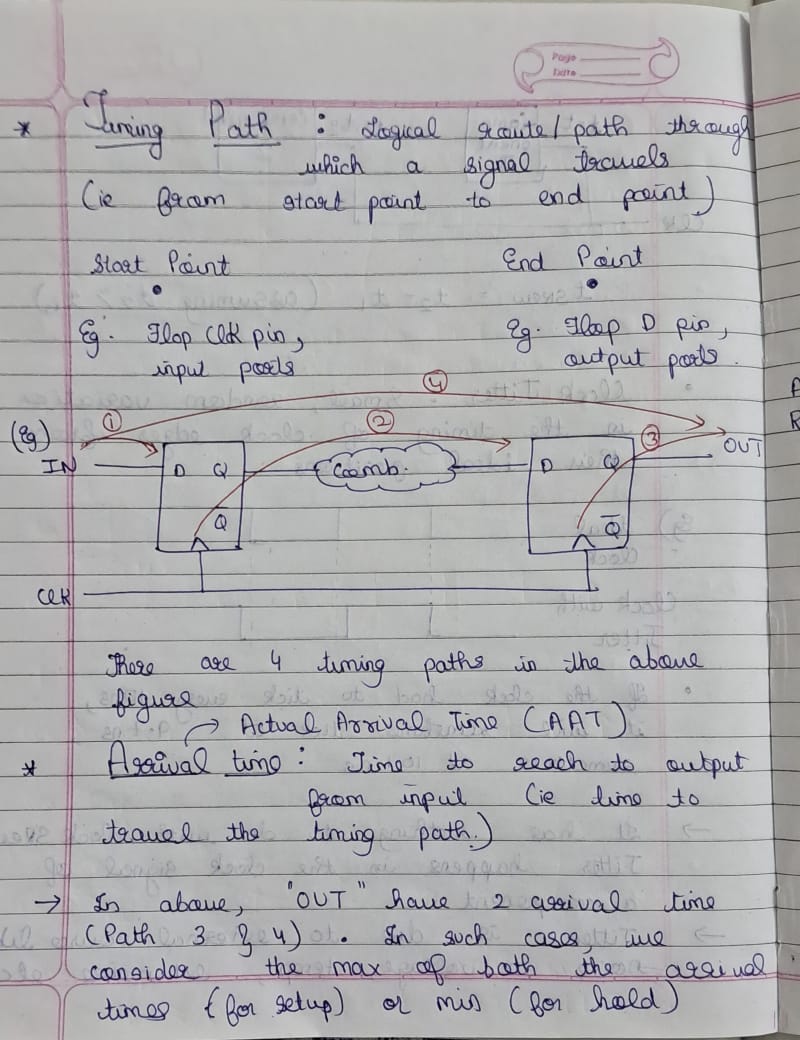 Page
Date
* Timing Path : Logical route/path through
which a signal travels
(ie from start point to end point)
Start Point
End Point
Eg. Flop Clk pin,
input ports
Eg. Flop D pin,
output ports.
(Eg)
① ② ③ ④
IN D Q Comb. D Q OUT
Q̅ Q̅
Clk
There are 4 timing paths in the above
figure
→ Actual Arrival Time (AAT)
* Arrival time : Time to reach to output
from input (ie time to
travel the timing path.)
→ In above, "OUT" have 2 arrival time
(Path 3 & 4). In such cases, we
consider the max of both the arrival
times (for setup) or min (for hold)